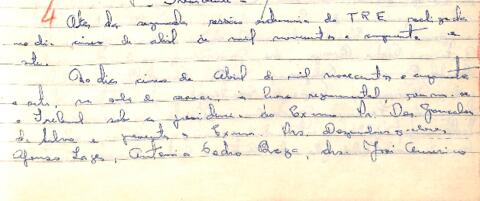 4 Ata da segunda sessão ordinaria do TRE realizada
no dia cinco de abril de mil novecentos e cinquenta e
oito.
Ao dia cinco de Abril de mil novecentos e cinquenta
e oito, na sala de sessões, à hora regimental, reuniu-se
o Tribunal sob a presidencia do Exmo Sr. Des. Gonçalves
da Silva e presentes os Exmos. Srs. Desembargadores
Afonso Lages, Antonio Pedro Braga, drs. José Americo